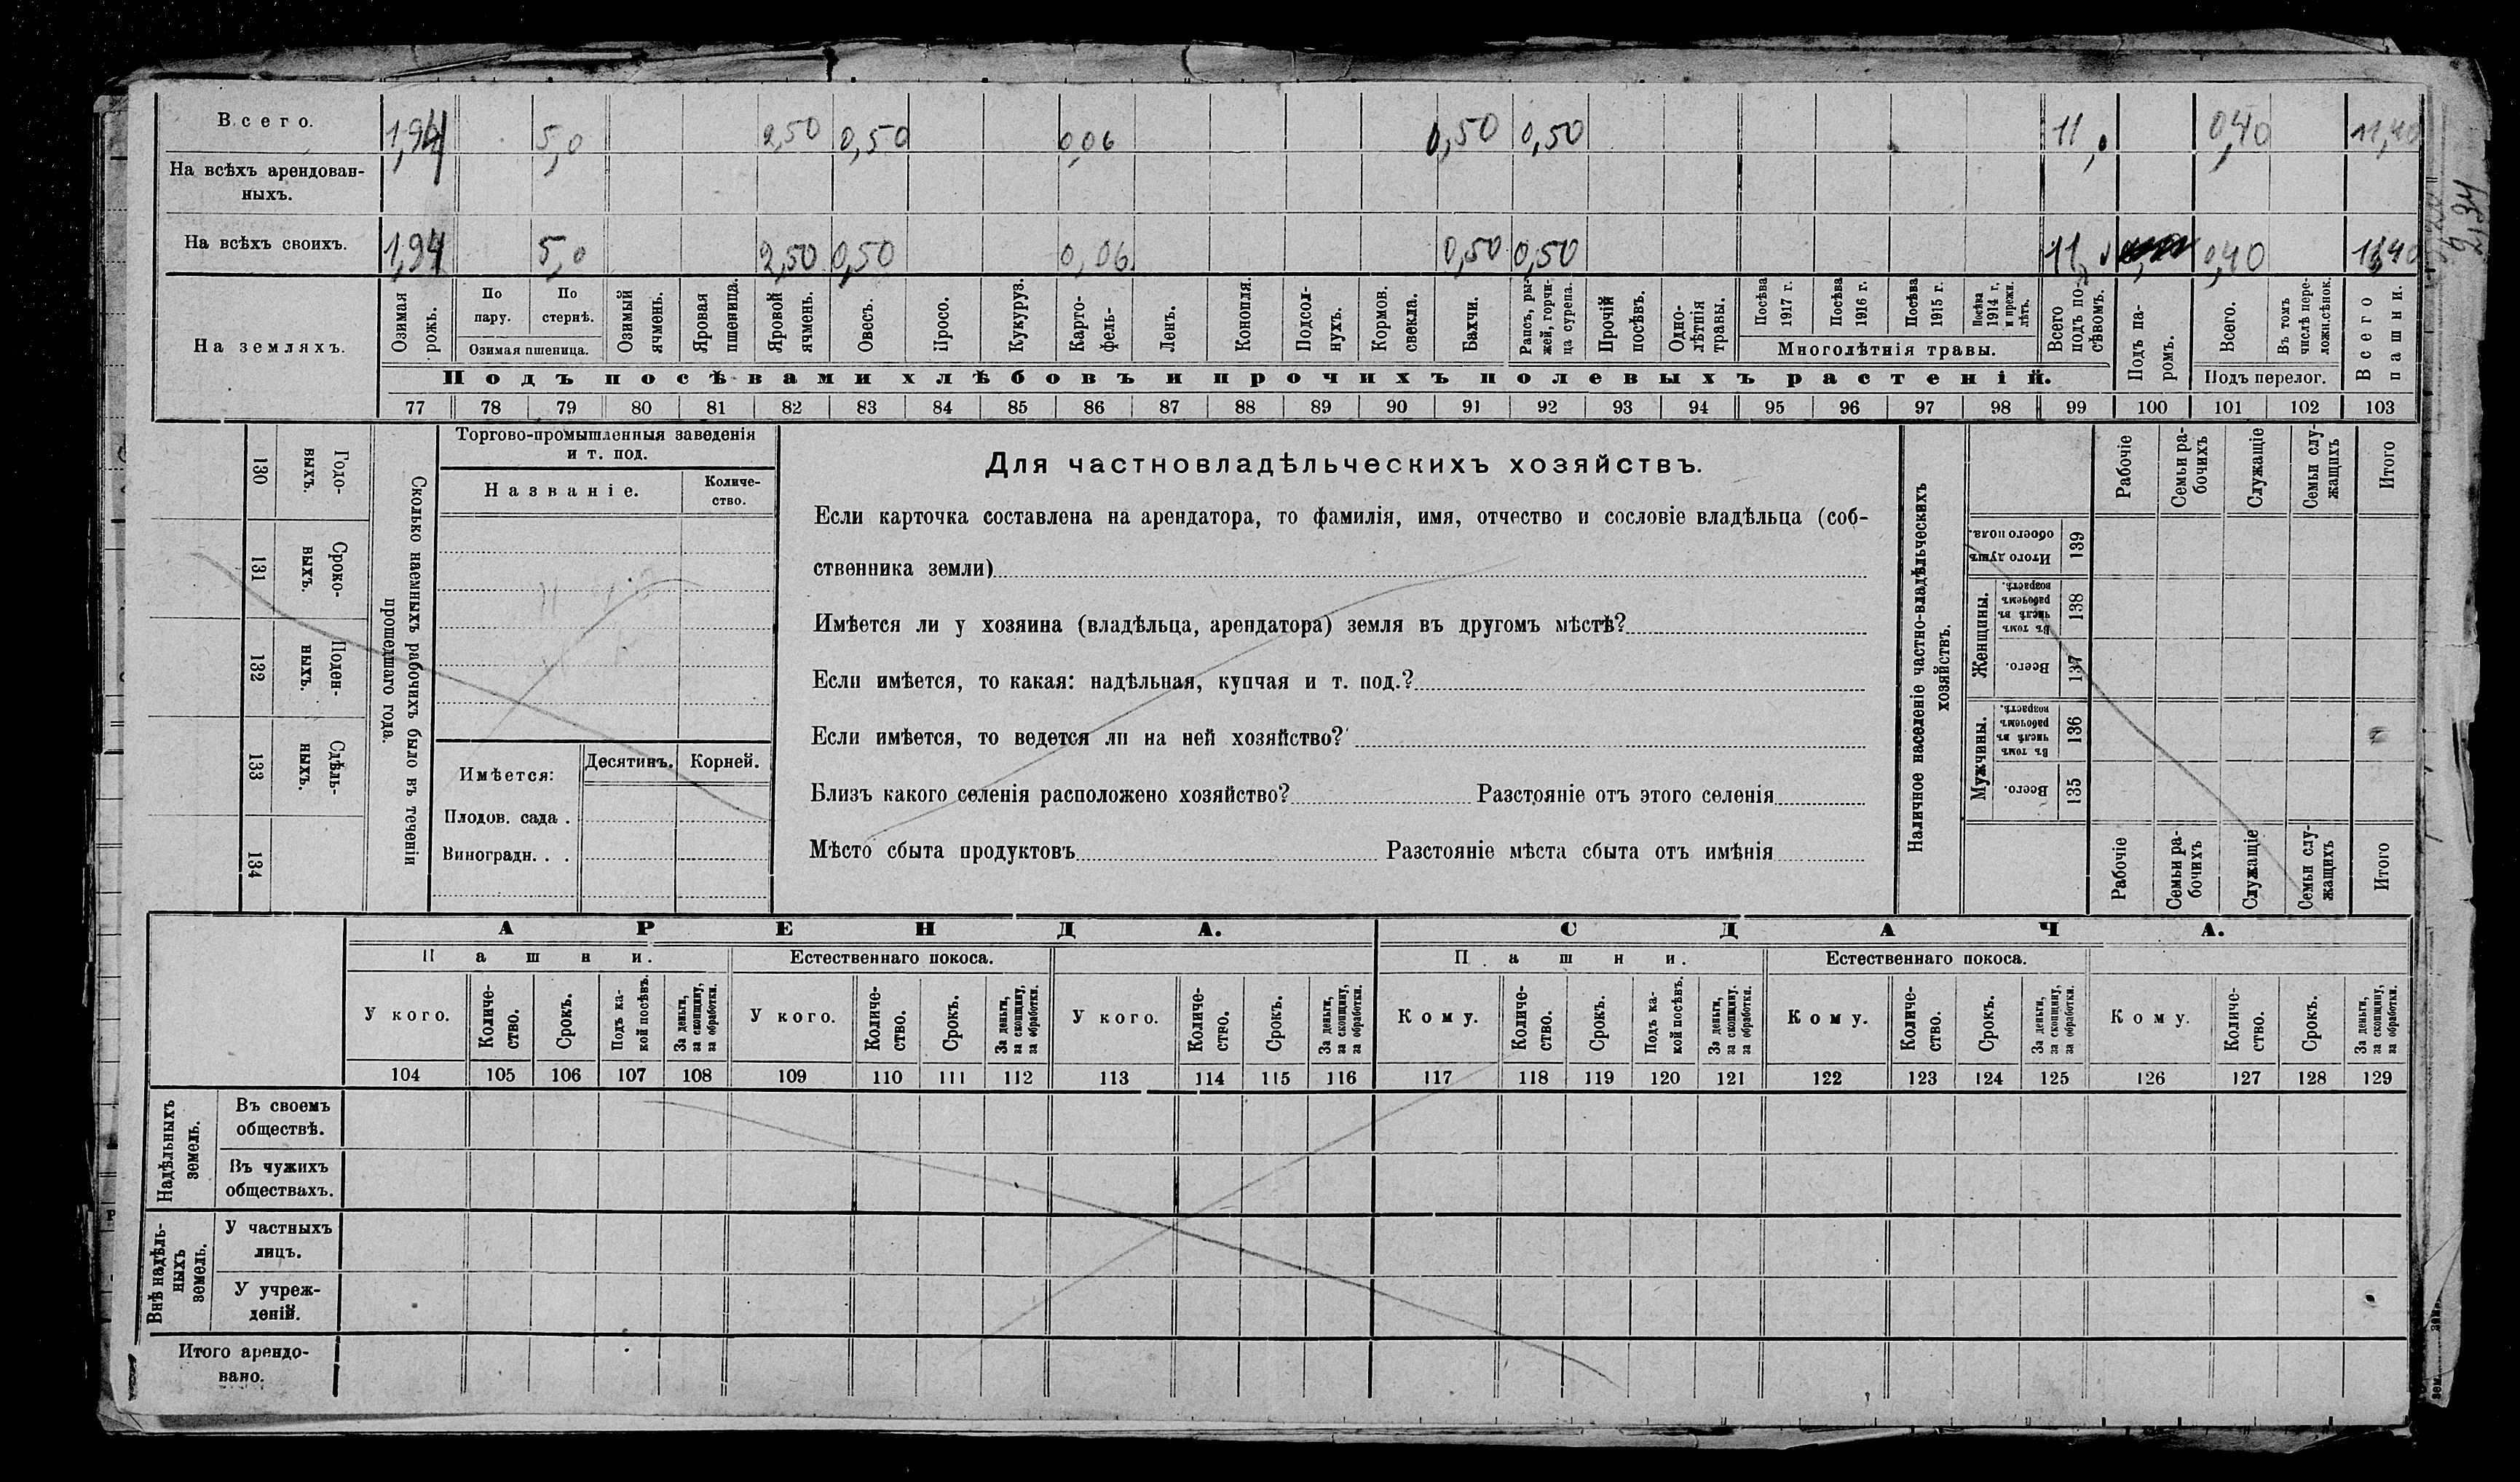 Всего. 1,94 5,0 2,50 0,50 0,06 0,50 0,50 11, 0,40 11,40
На всѣхъ арендован-
ныхъ.
На всѣхъ своихъ. 1,94 5,0 2,50 0,50 0,06 0,50 0,50 11, 0,40 11,40
2,34
На земляхъ.
Озимая рожь.
По пару.
По стернѣ.
Озимая пшеница.
Озимый ячмень.
Яровая пшеница.
Яровой ячмень.
Овесъ.
Просо.
Кукуруз.
Карто-
фель-
Ленъ.
Конопля.
Подсол-
нухъ.
Кормов. свекла.
Бахчи.
Рапсъ, ры-
жей, горчи-
ца сурепа.
Прочій посѣвъ.
Одно-
лѣтнія травы.
Посѣва 1917 г.
Посѣва 1916 г.
Посѣва 1915 г.
Посѣва 1914 г. и прежн. лѣтъ.
Многолѣтнія травы.
Всего подъ по-
сѣвомъ.
Подъ па-
ромъ.
Всего.
Въ томъ числѣ пере-
ложн.сѣнок.
Подъ перелог.
Всего пашни.
Подъ посѣвами хлѣбовъ и прочихъ полевыхъ растеній.
77 78 79 80 81 82 83 84 85 86 87 88 89 90 91 92 93 94 95 96 97 98 99 100 101 102 103
130 Годо-
выхъ.
131 Сроко-
выхъ.
132 Поден-
ныхъ.
133 Сдѣль-
ныхъ.
134
Сколько наемныхъ рабочихъ было въ теченіи
прошедшаго года.
Торгово-промышленныя заведенія
и т. под.
Названіе.
Количе-
ство.
Имѣется:
Десятинъ. Корней.
Плодов. сада .
Виноградн. . .
Для частновладѣльческихъ хозяйствъ.
Если карточка составлена на арендатора, то фамилія, имя, отчество и сословіе владѣльца (соб-
ственника земли)
Имѣется ли у хозяина (владѣльца, арендатора) земля въ другомъ мѣстѣ?
Если имѣется, то какая: надѣльная, купчая и т. под.?
Если имѣется, то ведется ли на ней хозяйство?
Близъ какого селенія расположено хозяйство? Разстояніе отъ этого селенія
Мѣсто сбыта продуктовъ Разстояніе мѣста сбыта отъ имѣнія
Наличное населеніе частно-владѣльческихъ
хозяйствъ.
Рабочіе
Семьи ра-
бочихъ
Служащіе
Семьи слу-
жащихъ
Итого
Итого душъ обоего пола. 139
Женщины.
Въ томъ числѣ въ рабочемъ возрастѣ. 138
Всего. 137
Мужчины.
Въ томъ числѣ въ рабочемъ возрастѣ. 136
Всего. 135
Рабочіе
Семьи ра-
бочихъ
Служащіе
Семьи слу-
жащихъ
Итого
АРЕНДА. СДАЧА.
Пашни. Естественнаго покоса. Пашни. Естественнаго покоса.
У кого.
Количе-
ство.
Срокъ.
Подъ ка-
кой посѣвъ.
За деньги,
за скопщину,
за обработки.
У кого.
Количе-
ство.
Срокъ.
За деньги,
за скопщину,
за обработки.
У кого.
Количе-
ство.
Срокъ.
За деньги,
за скопщину,
за обработки.
Кому.
Количе-
ство.
Срокъ.
Подъ ка-
кой посѣвъ.
За деньги,
за скопщину.
за обработки.
Кому.
Количе-
ство.
Срокъ.
За деньги,
за скопщину,
за обработки.
Кому.
Количе-
ство.
Срокъ.
За деньги,
за скопщину,
за обработки.
104 105 106 107 108 109 110 111 112 113 114 115 116 117 118 119 120 121 122 123 124 125 126 127 128 129
Надѣльныхъ
земель.
Въ своемъ
обществѣ.
Въ чужихъ
обществахъ.
Внѣ надѣль-
ныхъ
земель.
У частныхъ
лицъ.
У учреж-
деній.
Итого арендо-
вано.